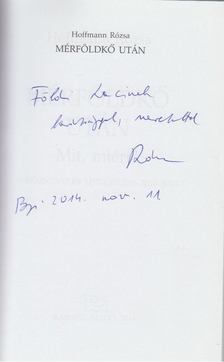 Hoffmann Rózsa
MÉRFÖLDKŐ UTÁN
Földi Lacinak
barátsággal, szeretettel
Rózsa
Bp. 2014. nov. 11